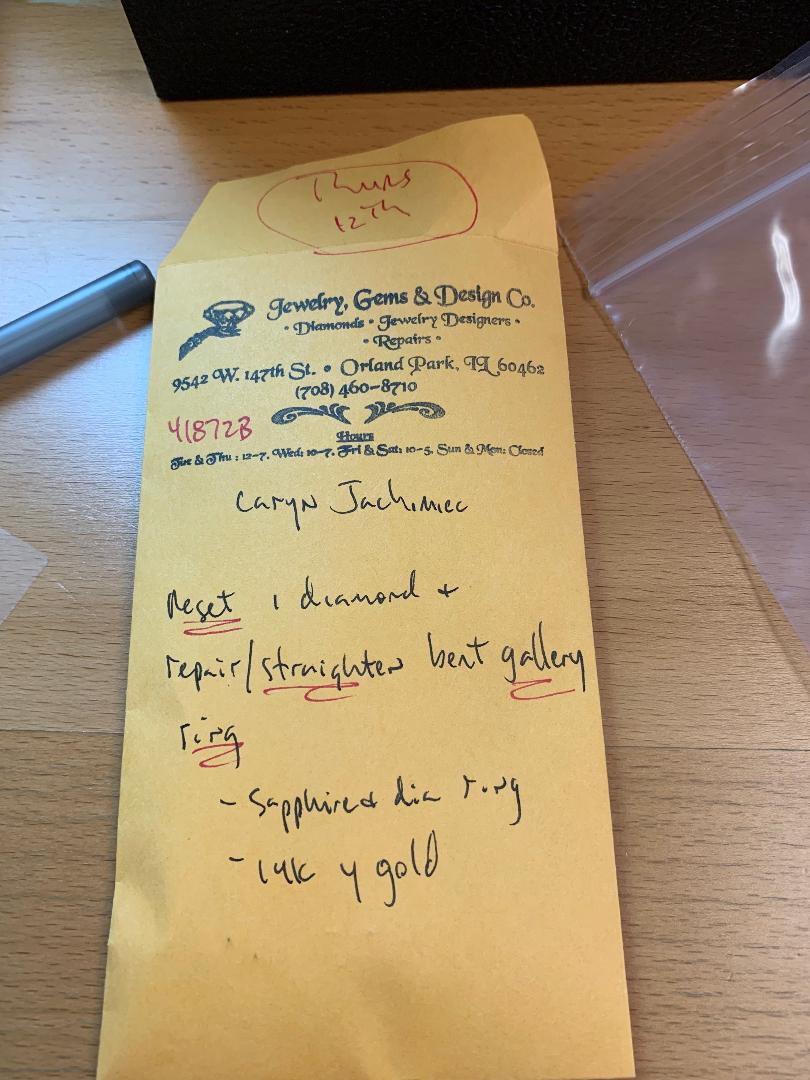 Thurs
12Th
Jewelry, Gems & Design Co.
• Diamonds • Jewelry Designers •
• Repairs •
9542 W. 147th St. • Orland Park, IL 60462
(708) 460-8710
41872B
Hours
Tue & Thu : 12-7, Wed: 10-7, Fri & Sat: 10-5, Sun & Mon: Closed
Caryn Jachimiec
Reset 1 diamond +
repair/straighten bent gallery
ring
- Sapphire & dia ring
- 14K y gold